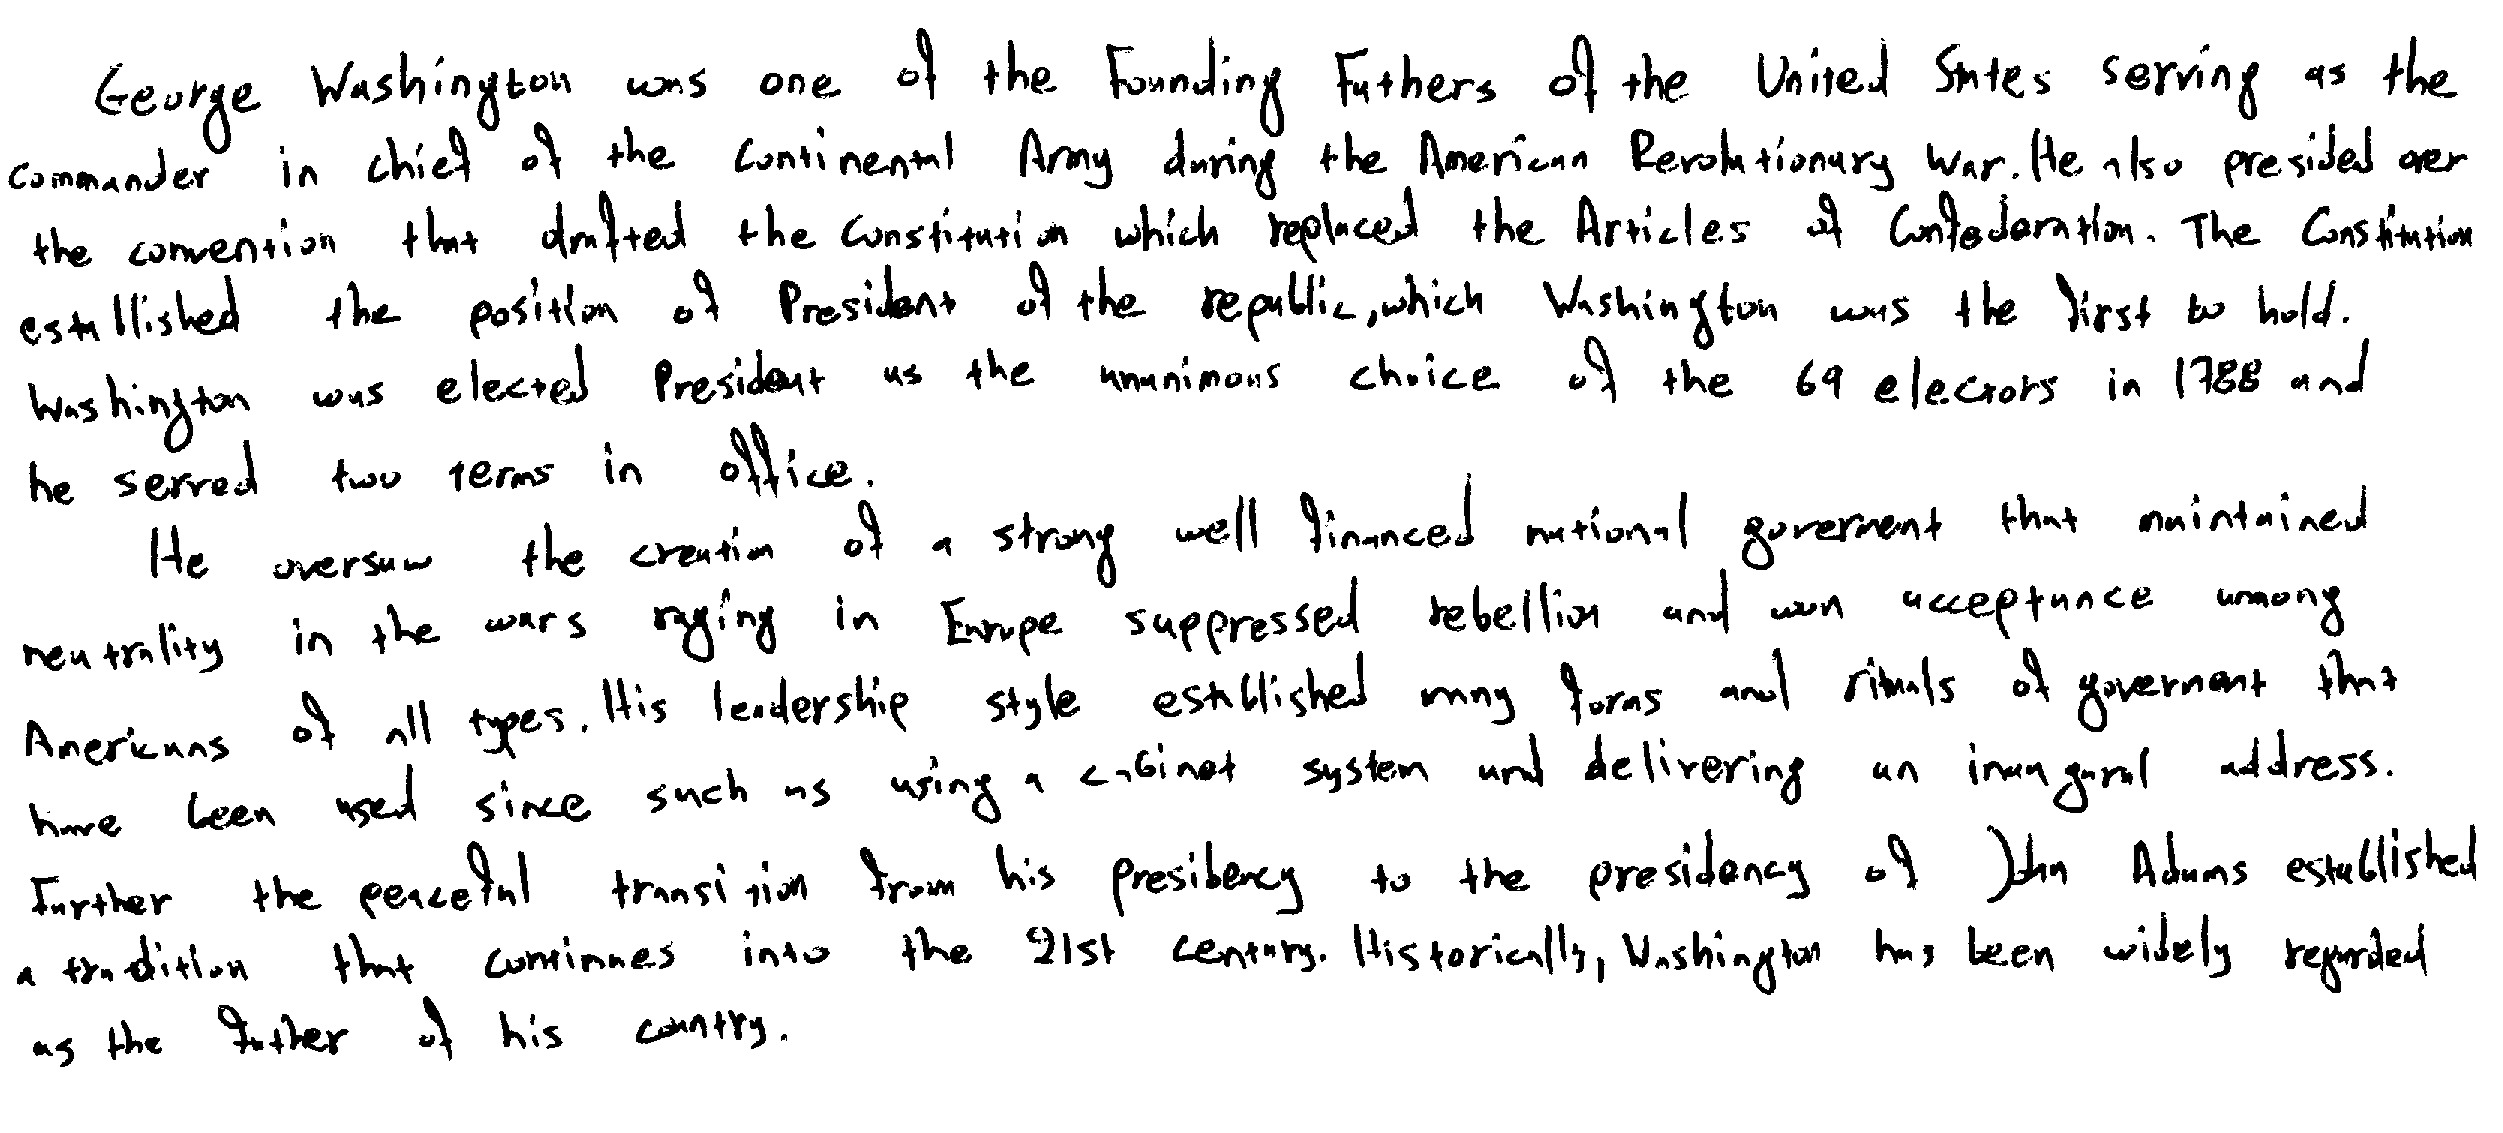 George Washington was one of the Founding Fathers of the United States serving as the
commander in chief of the Continental Army during the American Revolutionary War. He also presided over
the convention that drafted the Constitution which replaced the Articles of Confederation. The Constitution
established the position of President of the republic, which Washington was the first to hold.
Washington was elected President as the unanimous choice of the 69 electors in 1788 and
he served two terms in office.
He oversaw the creation of a strong well financed national government that maintained
neutrality in the wars raging in Europe suppressed rebellion and won acceptance among
Americans of all types. His leadership style established many forms and rituals of government that
have been used since such as using a cabinet system and delivering an inaugural address.
Further the peaceful transition from his presidency to the presidency of John Adams established
a tradition that continues into the 21st century. Historically, Washington has been widely regarded
as the father of his country.